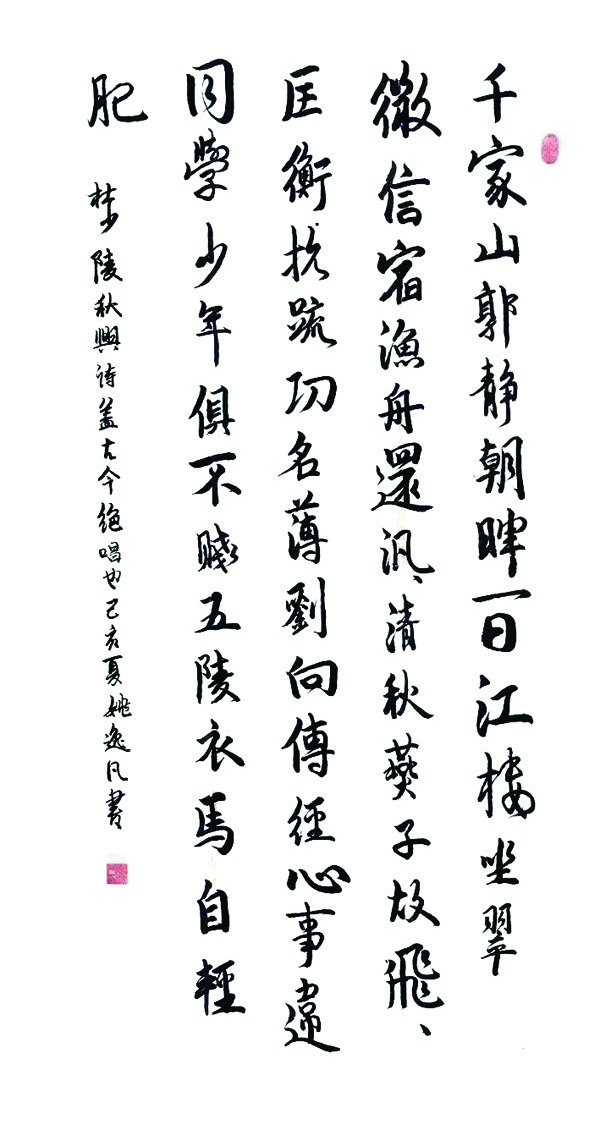 千家山郭静朝暉一日江楼坐翠
微信宿漁舟還汎、清秋燕子故飛、
匡衡抗疏功名薄劉向傳經心事違
同學少年俱不賤五陵衣馬自輕
肥
杜少陵秋興诗蓋古今絶唱也己亥夏姚逸凡書